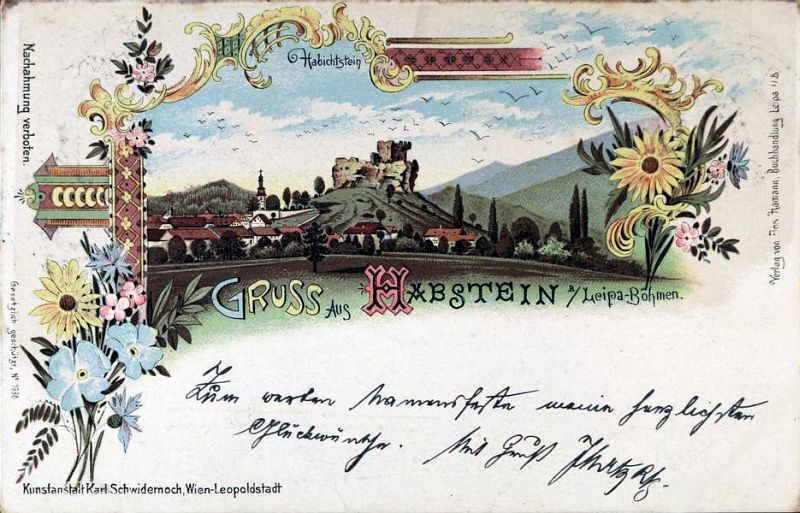 Nachahmung verboten.
Habichtstein
Verlag von Jos. Hamann, Buchhandlung Leipa i/B.
GRUSS AUS HABSTEIN B/Leipa-Böhmen.
Gesetzlich geschützt, Nº
Zum werten Namensfeste meine herzlichsten
Glückwünsche. Mit Gruß
Kunstanstalt Karl Schwidernoch, Wien-Leopoldstadt